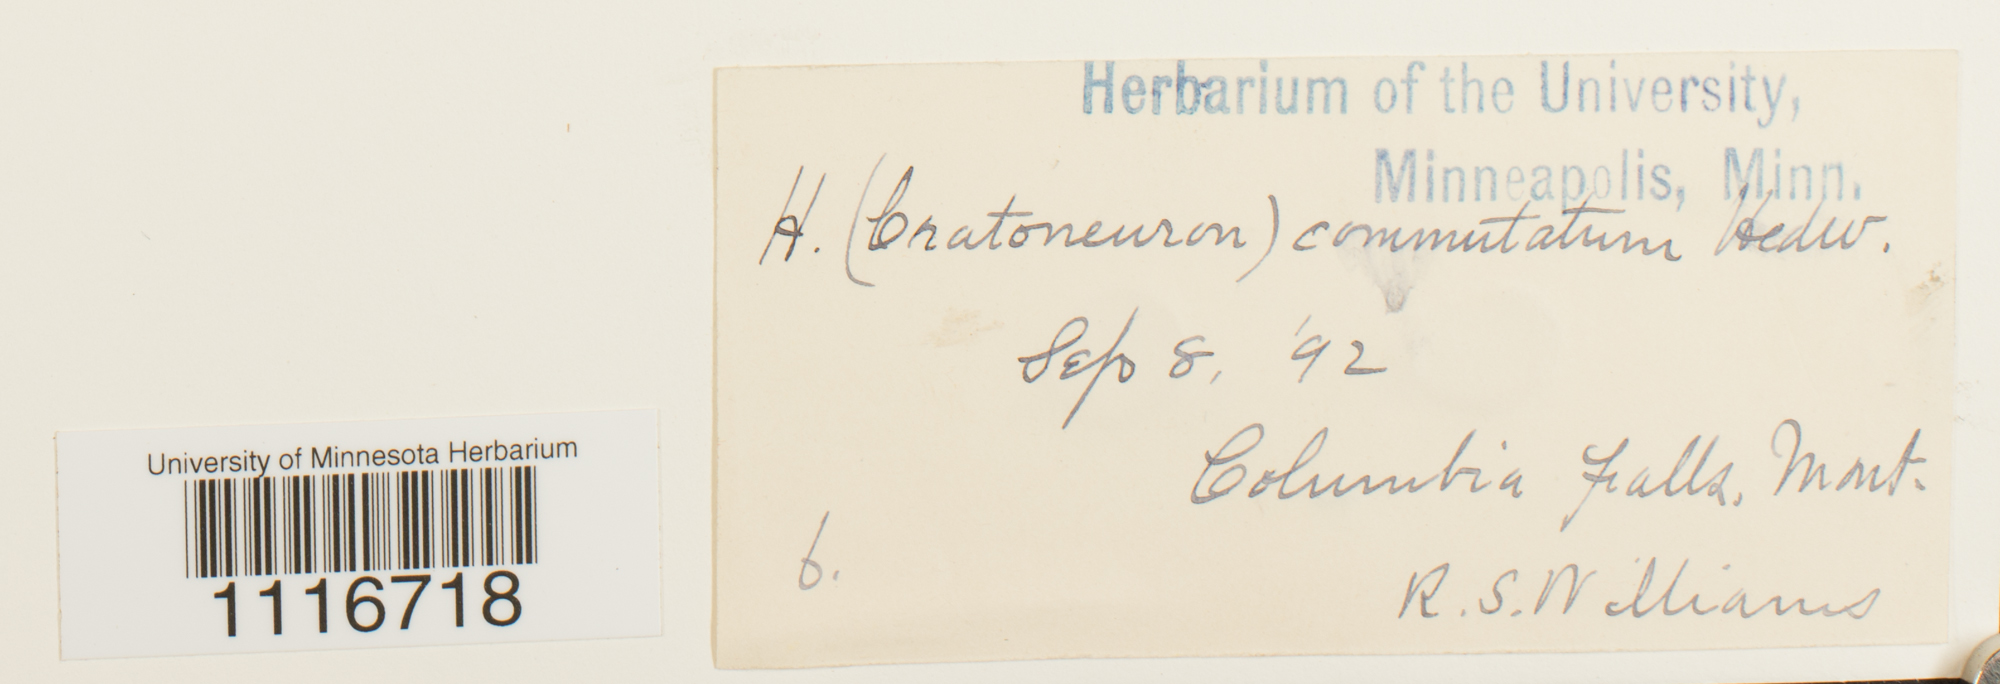 Herbarium of the University,
Minneapolis, Minn.
H. (Cratoneuron) commutatum Hedw.
Sep 8, '92
Columbia Falls, Mont.
6.
R. S. Williams
University of Minnesota Herbarium
1116718